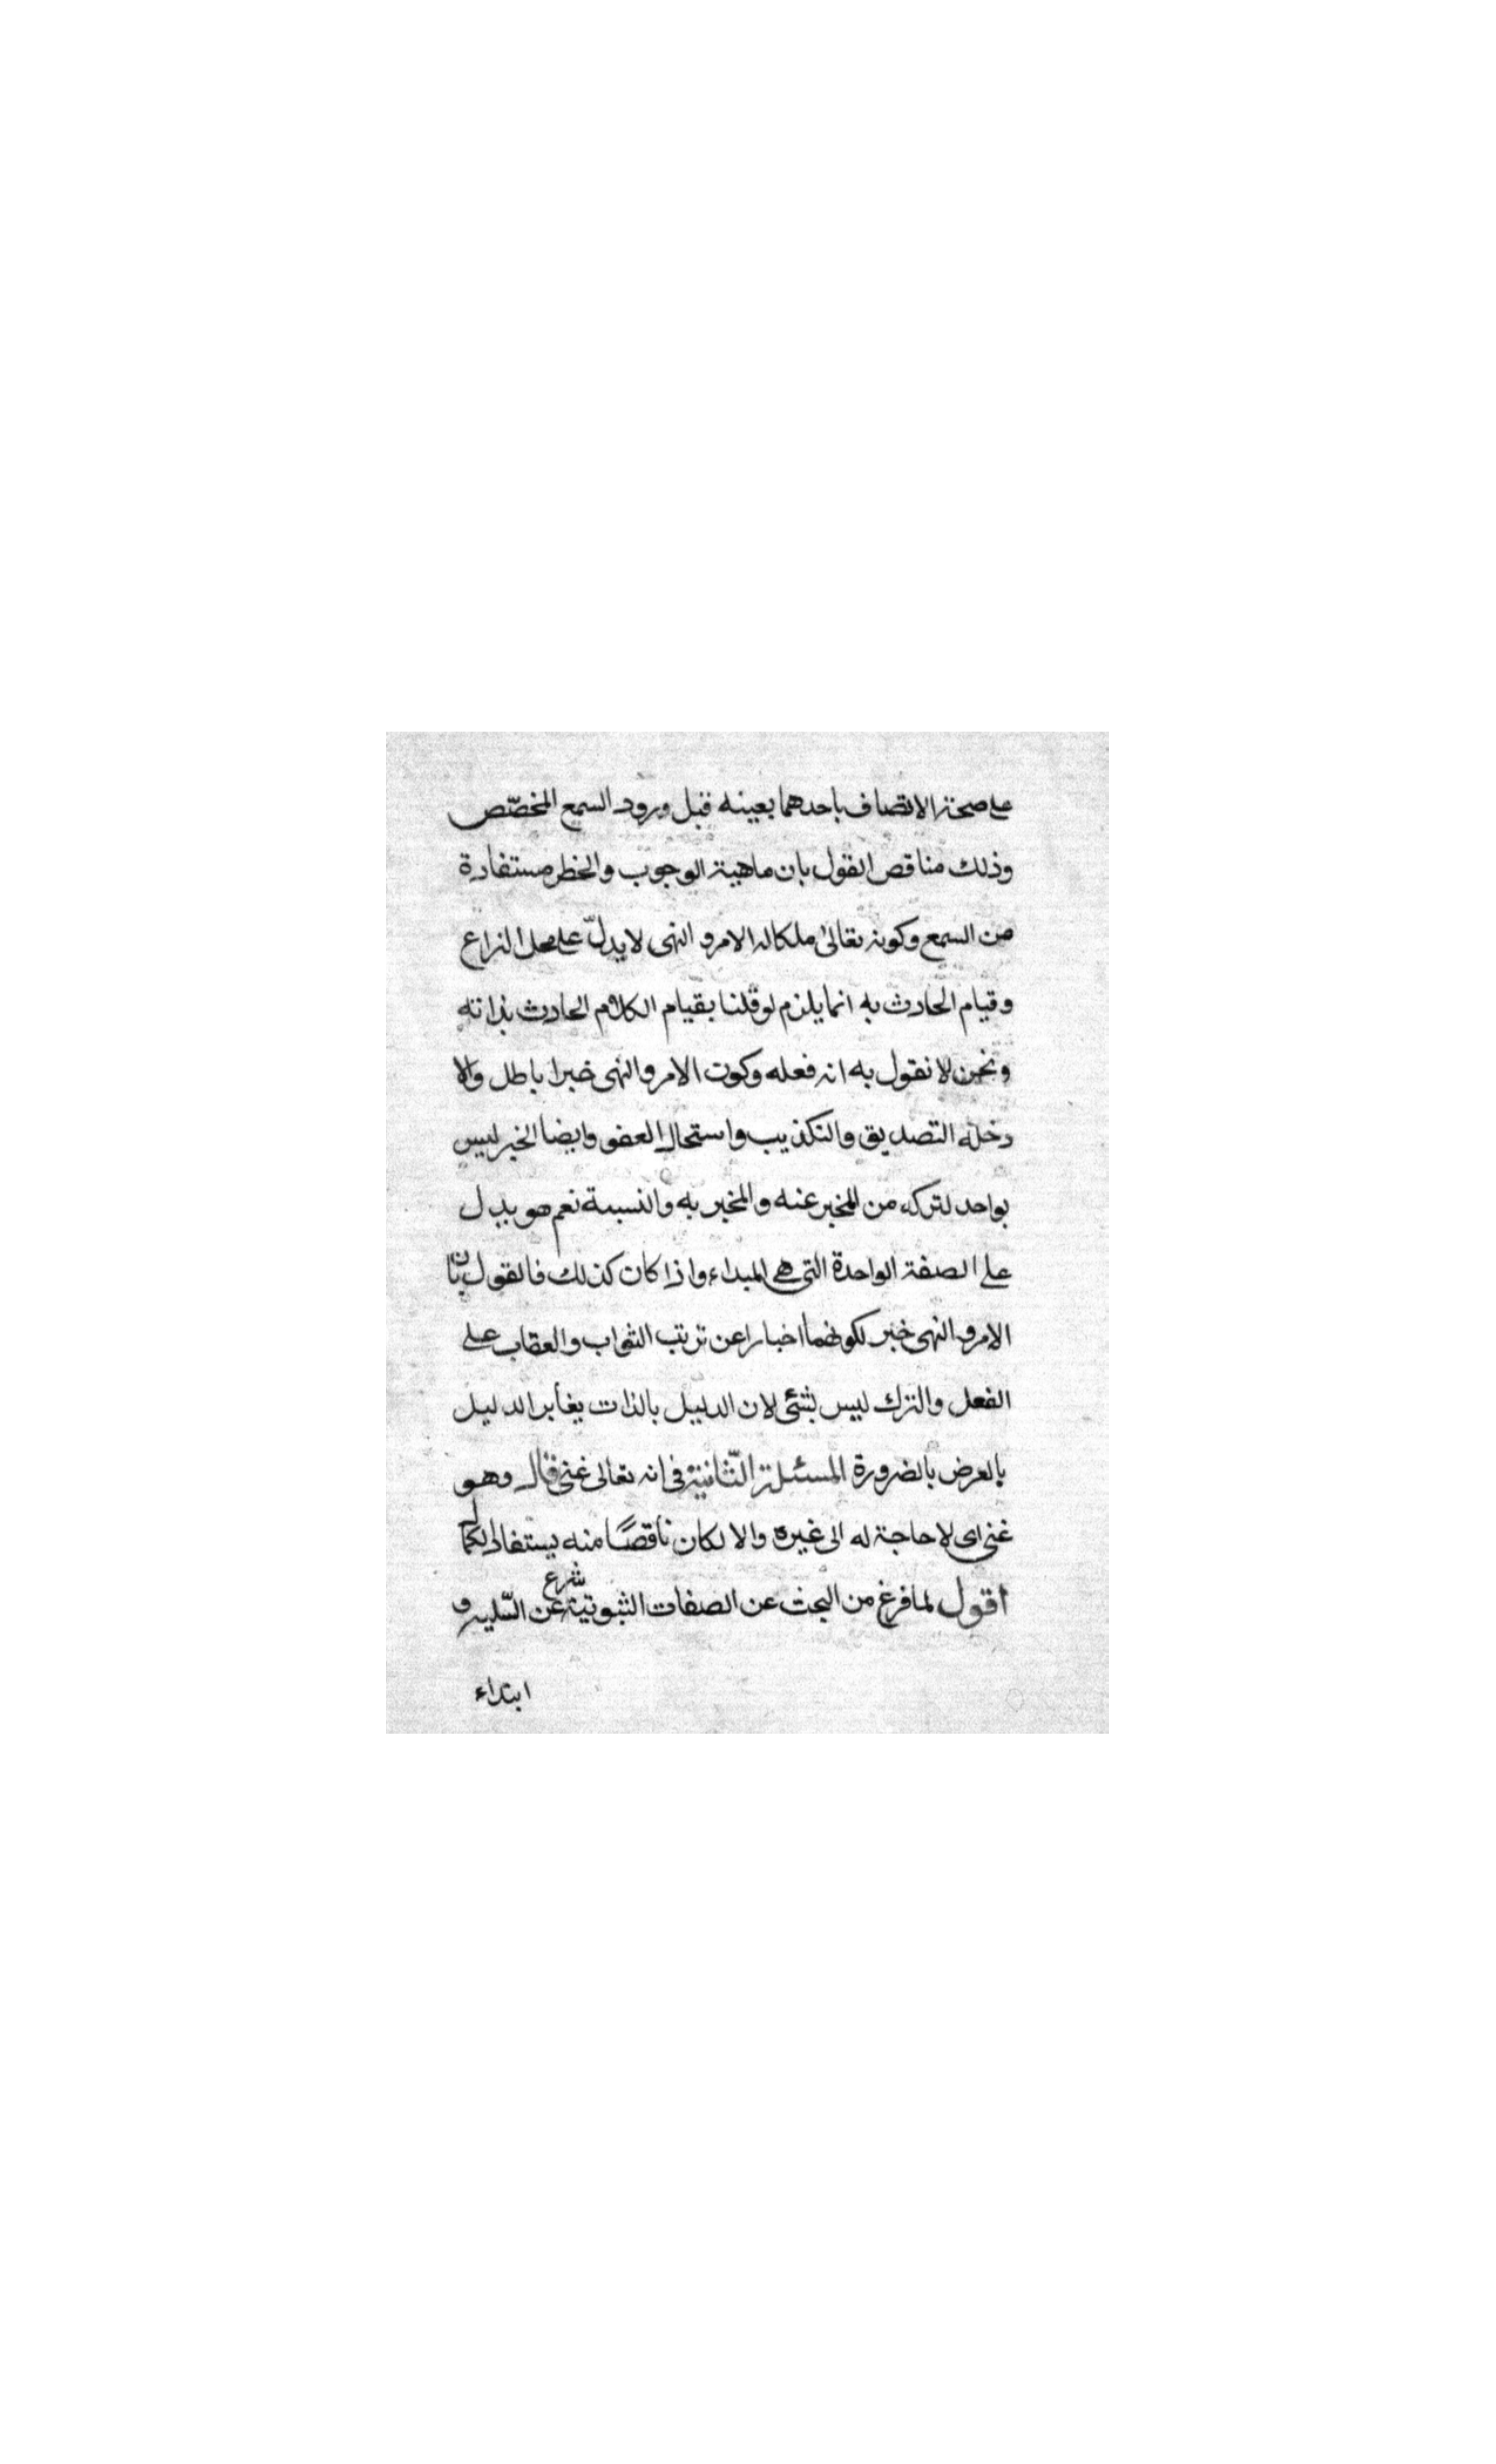 على صحة الاتصاف باحدهما بعينه قبل ورود السمع المخصّص
وذلك مناقص القول بان ماهية الوجوب والخطر مستفادة
من السمع وكونه تعالىٰ ملكا له الامر و النهى لا يدلّ على محل النزاع
وقيام الحادث به انما يلزم لو قلنا بقيام الكلام الحادث بذاته
ونحن لا نقول به انه فعله وكون الامر والنهى خبرا باطل والا
دخله التصديق والتكذيب واستحال العفو وايضا الخبر ليس
بواحد لتركبه من المخبر عنه والمخبر به والنسبة نعم هو يدل
على الصفة الواحدة التى هى المبداء واذا كان كذلك فالقول بان
الامر و النهى خبر لكونهما اخبارا عن ترتب الثواب والعقاب على
الفعل والترك ليس بشئ لان الدليل بالذات يغاير الدليل
بالعرض بالضرورة المسئلة الثّانية فى انه تعالى غنى قال وهو
غنى اى لا حاجة له الى غيره والا لكان ناقصًا منه يستفاد الكمال
اقول لما فرغ من البحث عن الصفات الثبوتية شرع عن السّلبية و
ابتداء